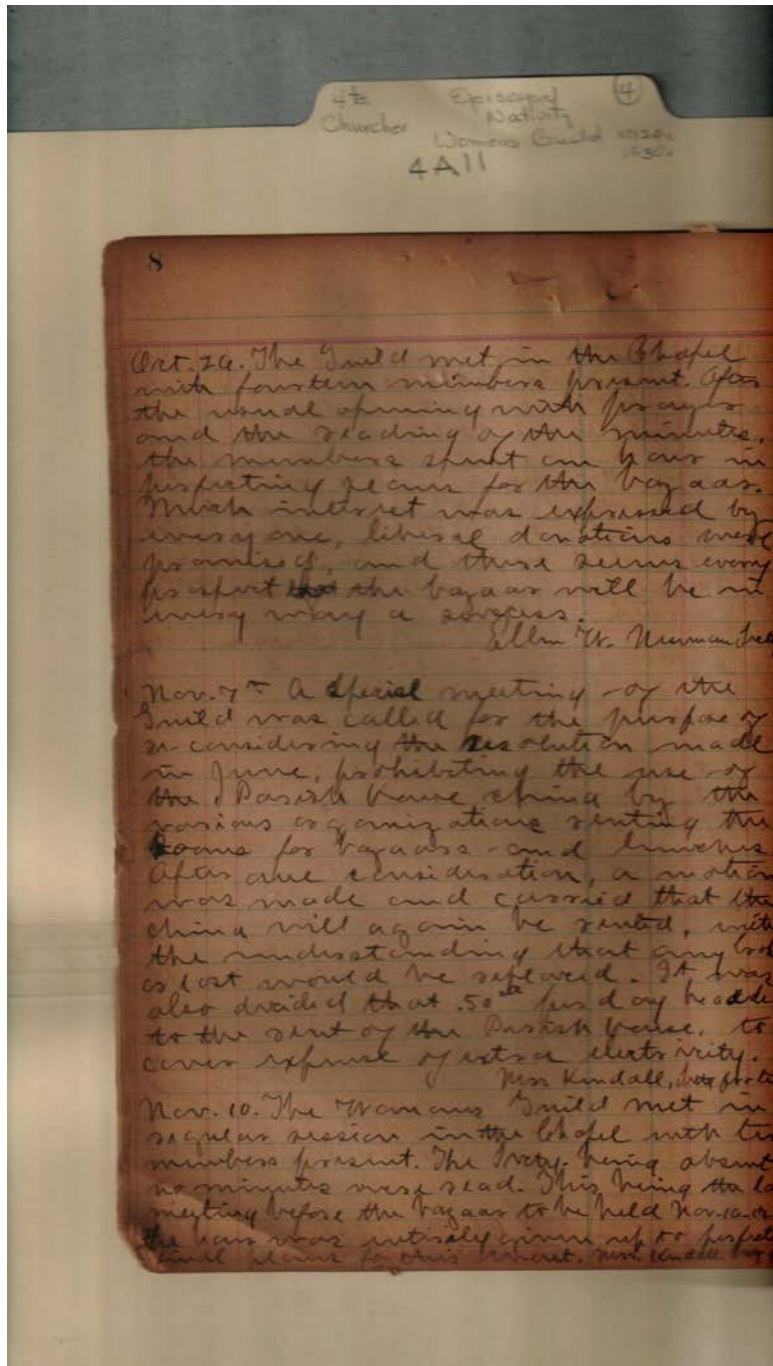 4th Episcopal 4
Churches Nativity
Womens Guild 1920s
1930s
4A11
8
Oct. 29. The Guild met in the Chapel
with fourteen members present. After
the usual opening with prayers
and the reading of the minutes,
the members spent an hour in
perfecting plans for the bazaar.
Much interest was expressed by
every one, liberal donations were
promised, and there seems every
prospect that the bazaar will be in
every way a success.
Ellen W. Newman
Nov. 7th A special meeting of the
Guild was called for the purpose of
re-considering the resolution made
in June, prohibiting the use of
the Parish house china by the
various organizations renting the
rooms for bazaars and lunches
After due consideration, a motion
was made and carried that the
china will again be rented, with
the understanding that any
or lost would be replaced. It was
also decided that .50 cts per day be added
to the rent of the Parish house, to
cover expense of extra electricity.
Miss Kendall,
Nov. 10. The Womans Guild met in
regular session in the Chapel with
members present. The Secty. being absent
no minutes were read. This being the
meeting before the bazaar to be held Nov.
the hour was entirely given up to
final plans for this event. Miss Kendall.